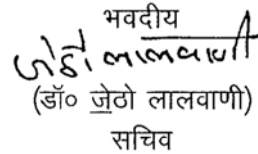 भवदीय
जेठो लालवाणी
(डॉ० जेठो लालवाणी)
सचिव